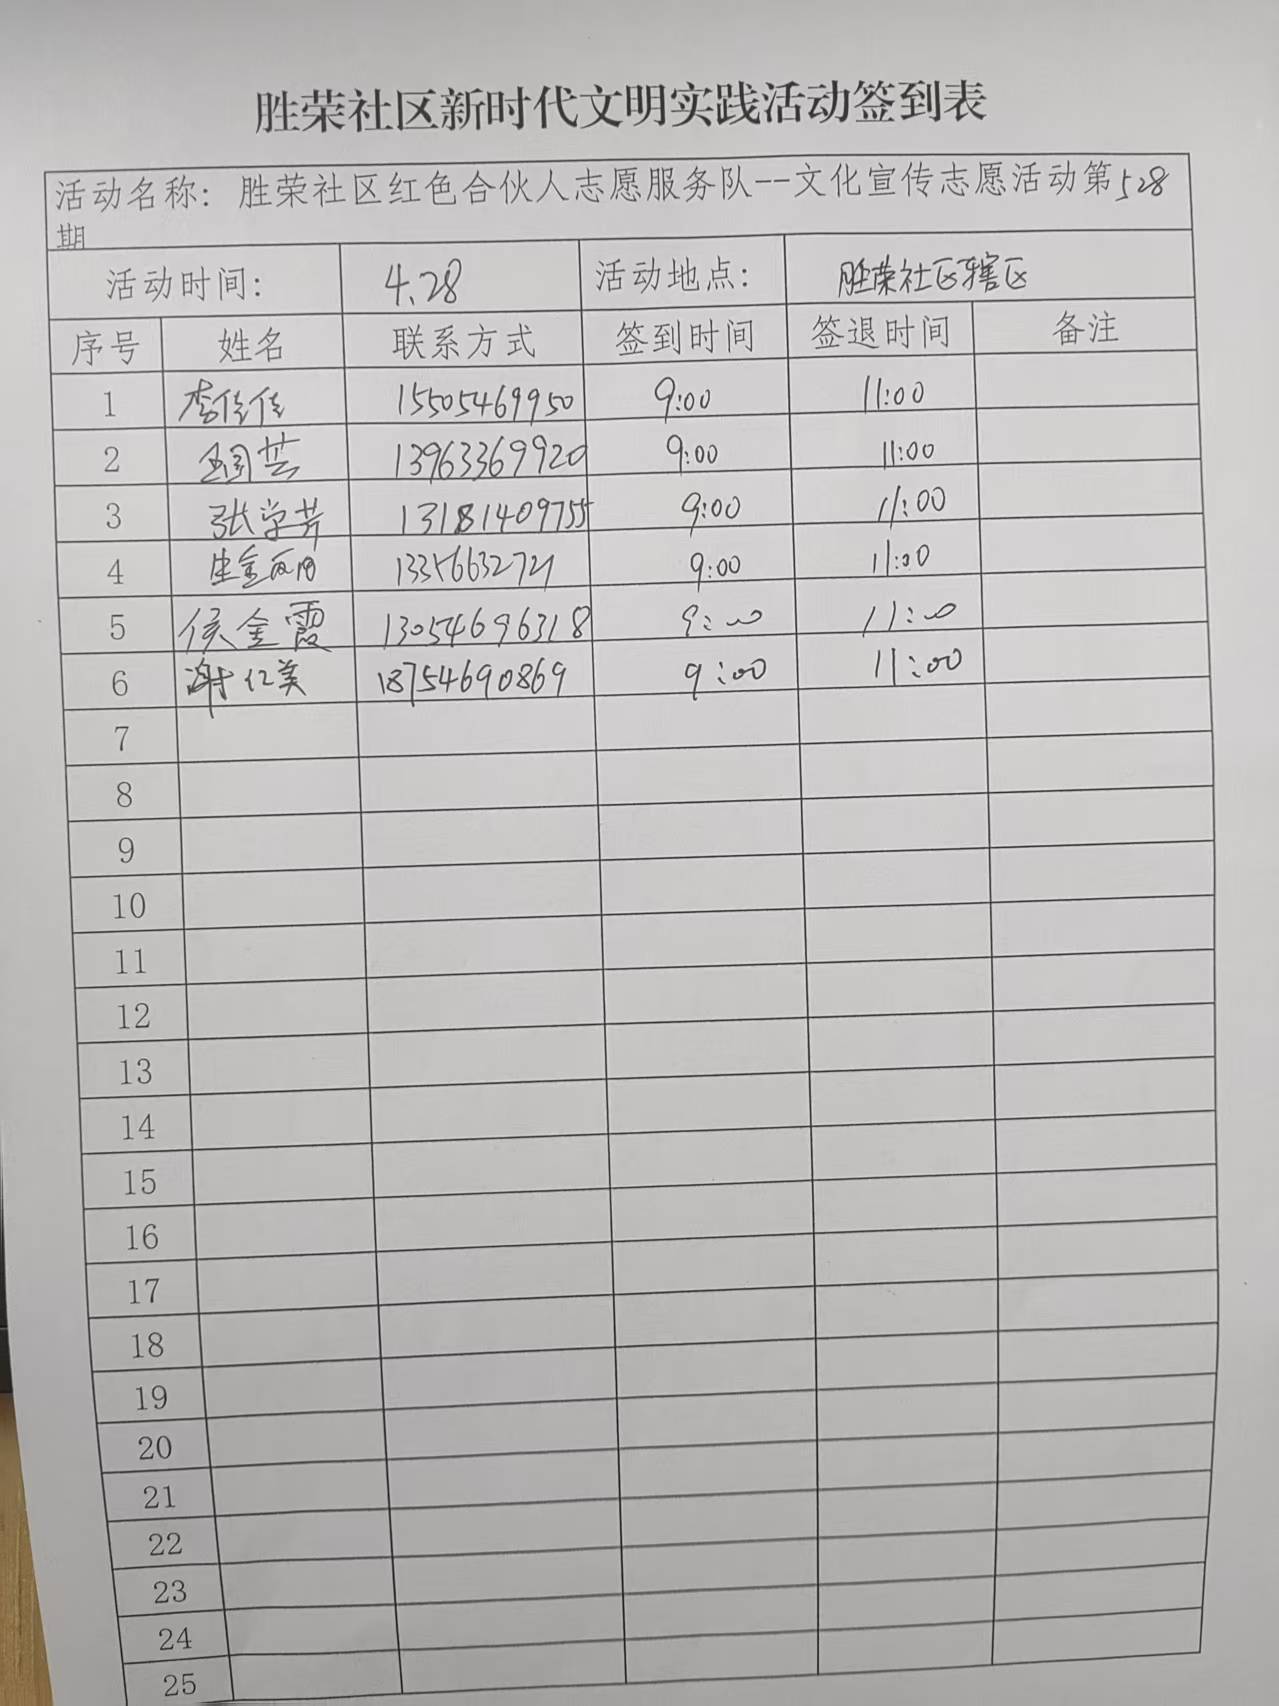 胜荣社区新时代文明实践活动签到表
活动名称: 胜荣社区红色合伙人志愿服务队--文化宣传志愿活动第528
期
活动时间: 4.28 活动地点: 胜荣社区辖区
序号 姓名 联系方式 签到时间 签退时间 备注
1 李佳佳 15505469950 9:00 11:00
2 13963369920 9:00 11:00
3 张学芳 13181409755 9:00 11:00
4 13356632721 9:00 11:00
5 侯金霞 13054696318 9:00 11:00
6 谢仁美 18754690869 9:00 11:00
7
8
9
10
11
12
13
14
15
16
17
18
19
20
21
22
23
24
25